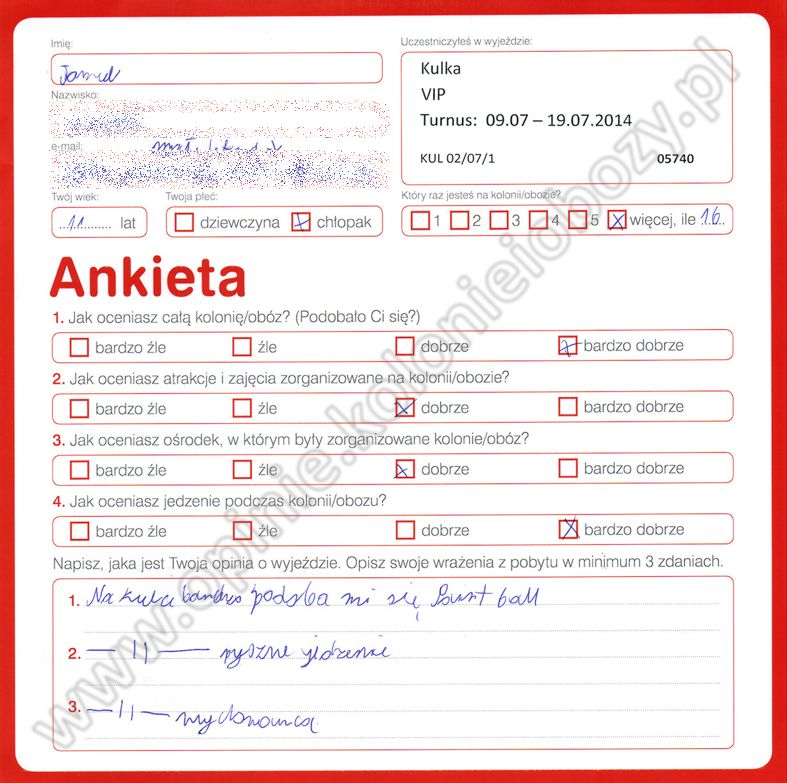 Imię:
Uczestniczyłeś w wyjeździe:
Kulka
VIP
Turnus: 09.07 – 19.07.2014
KUL 02/07/1 05740
Nazwisko:
e-mail:
Twój wiek: Twoja płeć: Który raz jesteś na kolonii/obozie?
11 lat dziewczyna chłopak 1 2 3 4 5 więcej, ile 16
Ankieta
1. Jak oceniasz całą kolonię/obóz? (Podobało Ci się?)
bardzo źle źle dobrze bardzo dobrze
2. Jak oceniasz atrakcje i zajęcia zorganizowane na kolonii/obozie?
bardzo źle źle dobrze bardzo dobrze
3. Jak oceniasz ośrodek, w którym były zorganizowane kolonie/obóz?
bardzo źle źle dobrze bardzo dobrze
4. Jak oceniasz jedzenie podczas kolonii/obozu?
bardzo źle źle dobrze bardzo dobrze
Napisz, jaka jest Twoja opinia o wyjeździe. Opisz swoje wrażenia z pobytu w minimum 3 zdaniach.
1. Na kulce podoba mi się Paint ball
2. — 11 — pyszne jedzenie
3. — 11 —
www.opinie.kolonieiobozy.pl